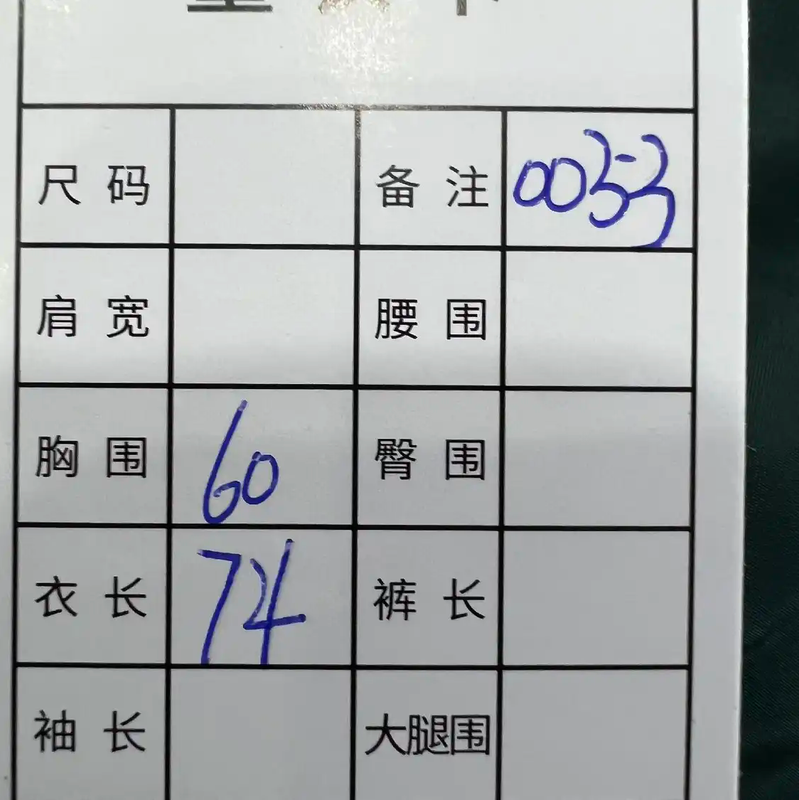 尺码 备注 0053
肩宽 腰围
胸围 60 臀围
衣长 74 裤长
袖长 大腿围